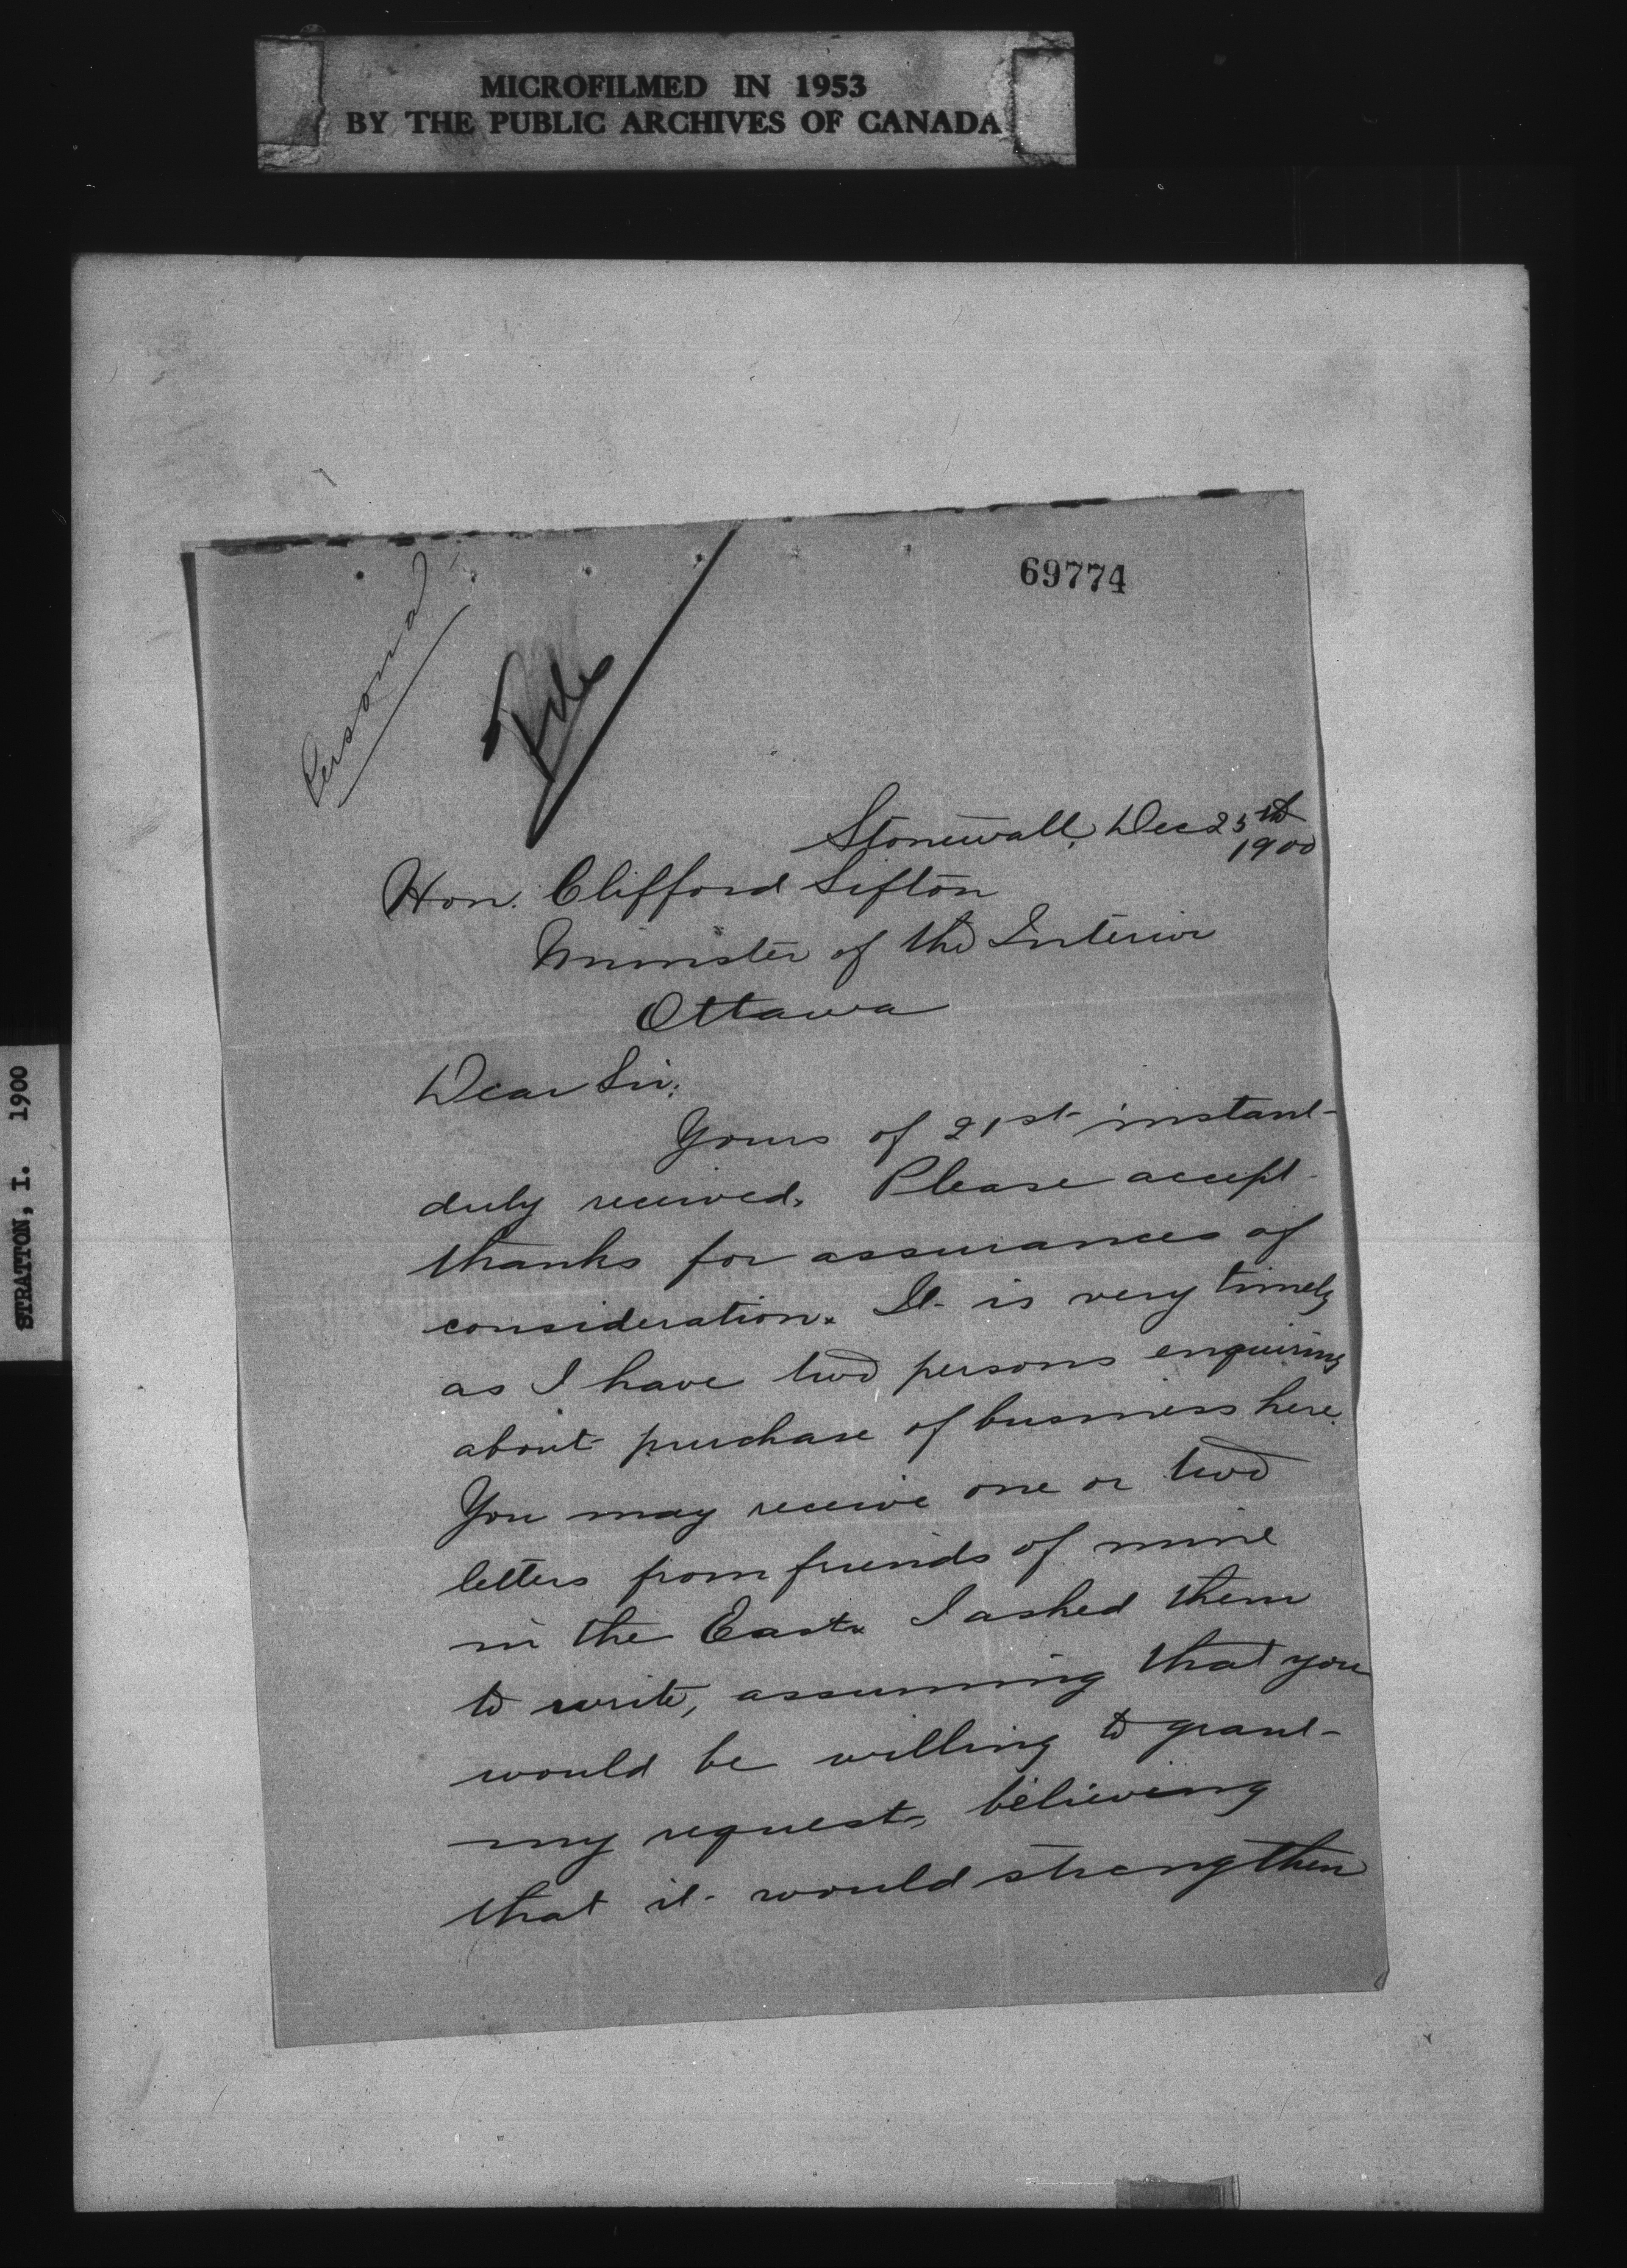 MICROFILMED IN 1953
BY THE PUBLIC ARCHIVES OF CANADA
STRATTON, I. 1900
69774
Personal
File
Stonewall, Dec 25th
1900
Hon. Clifford Sifton
Minister of the Interior
Ottawa
Dear Sir:
Yours of 21st instant
duly received. Please accept
thanks for assurances of
consideration. It is very timely
as I have two persons enquiring
about purchase of business here.
You may receive one or two
letters from friends of mine
in the East. I asked them
to write, assuming that you
would be willing to grant
my request, believing
that it would strengthen